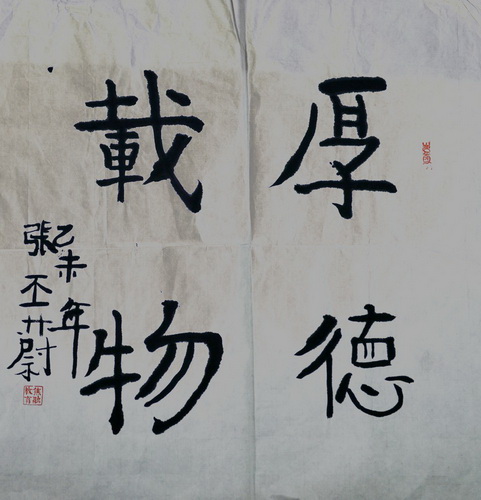 厚德
載物
乙未年
張丕蔚